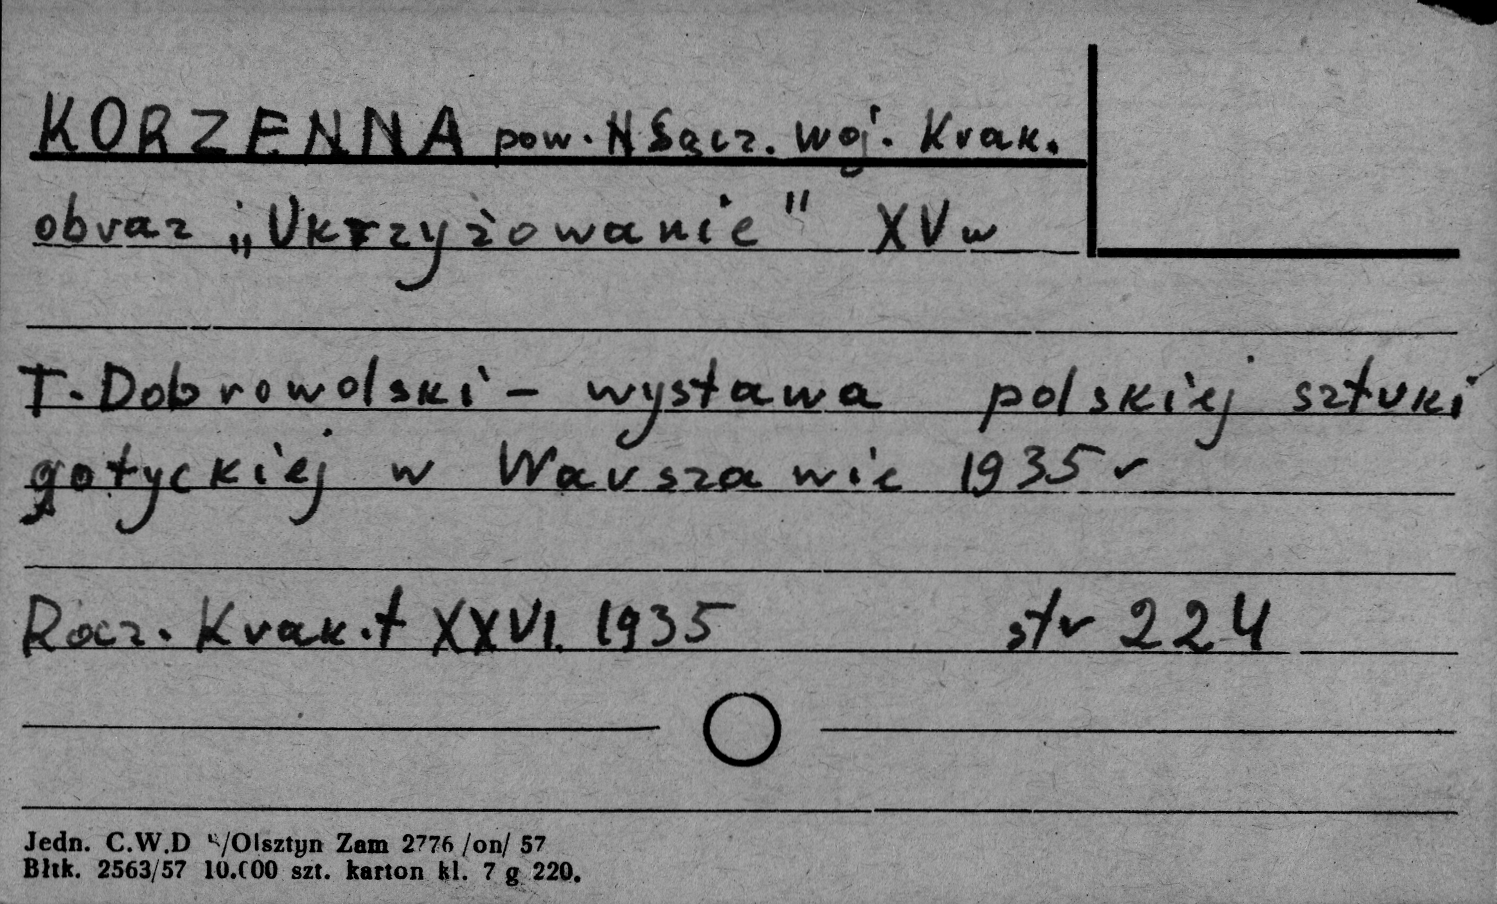 KORZENNA pow. N Sącz. woj. Krak.
obraz „Ukrzyżowanie" XV w
T. Dobrowolski – wystawa polskiej sztuki
gotyckiej w Warszawie 1935 r
Rocz. Krak. t XXVI. 1935 str 224
Jedn. C.W.D /Olsztyn Zam 2776 /on/ 57
Błtk. 2563/57 10.000 szt. karton kl. 7 g 220.